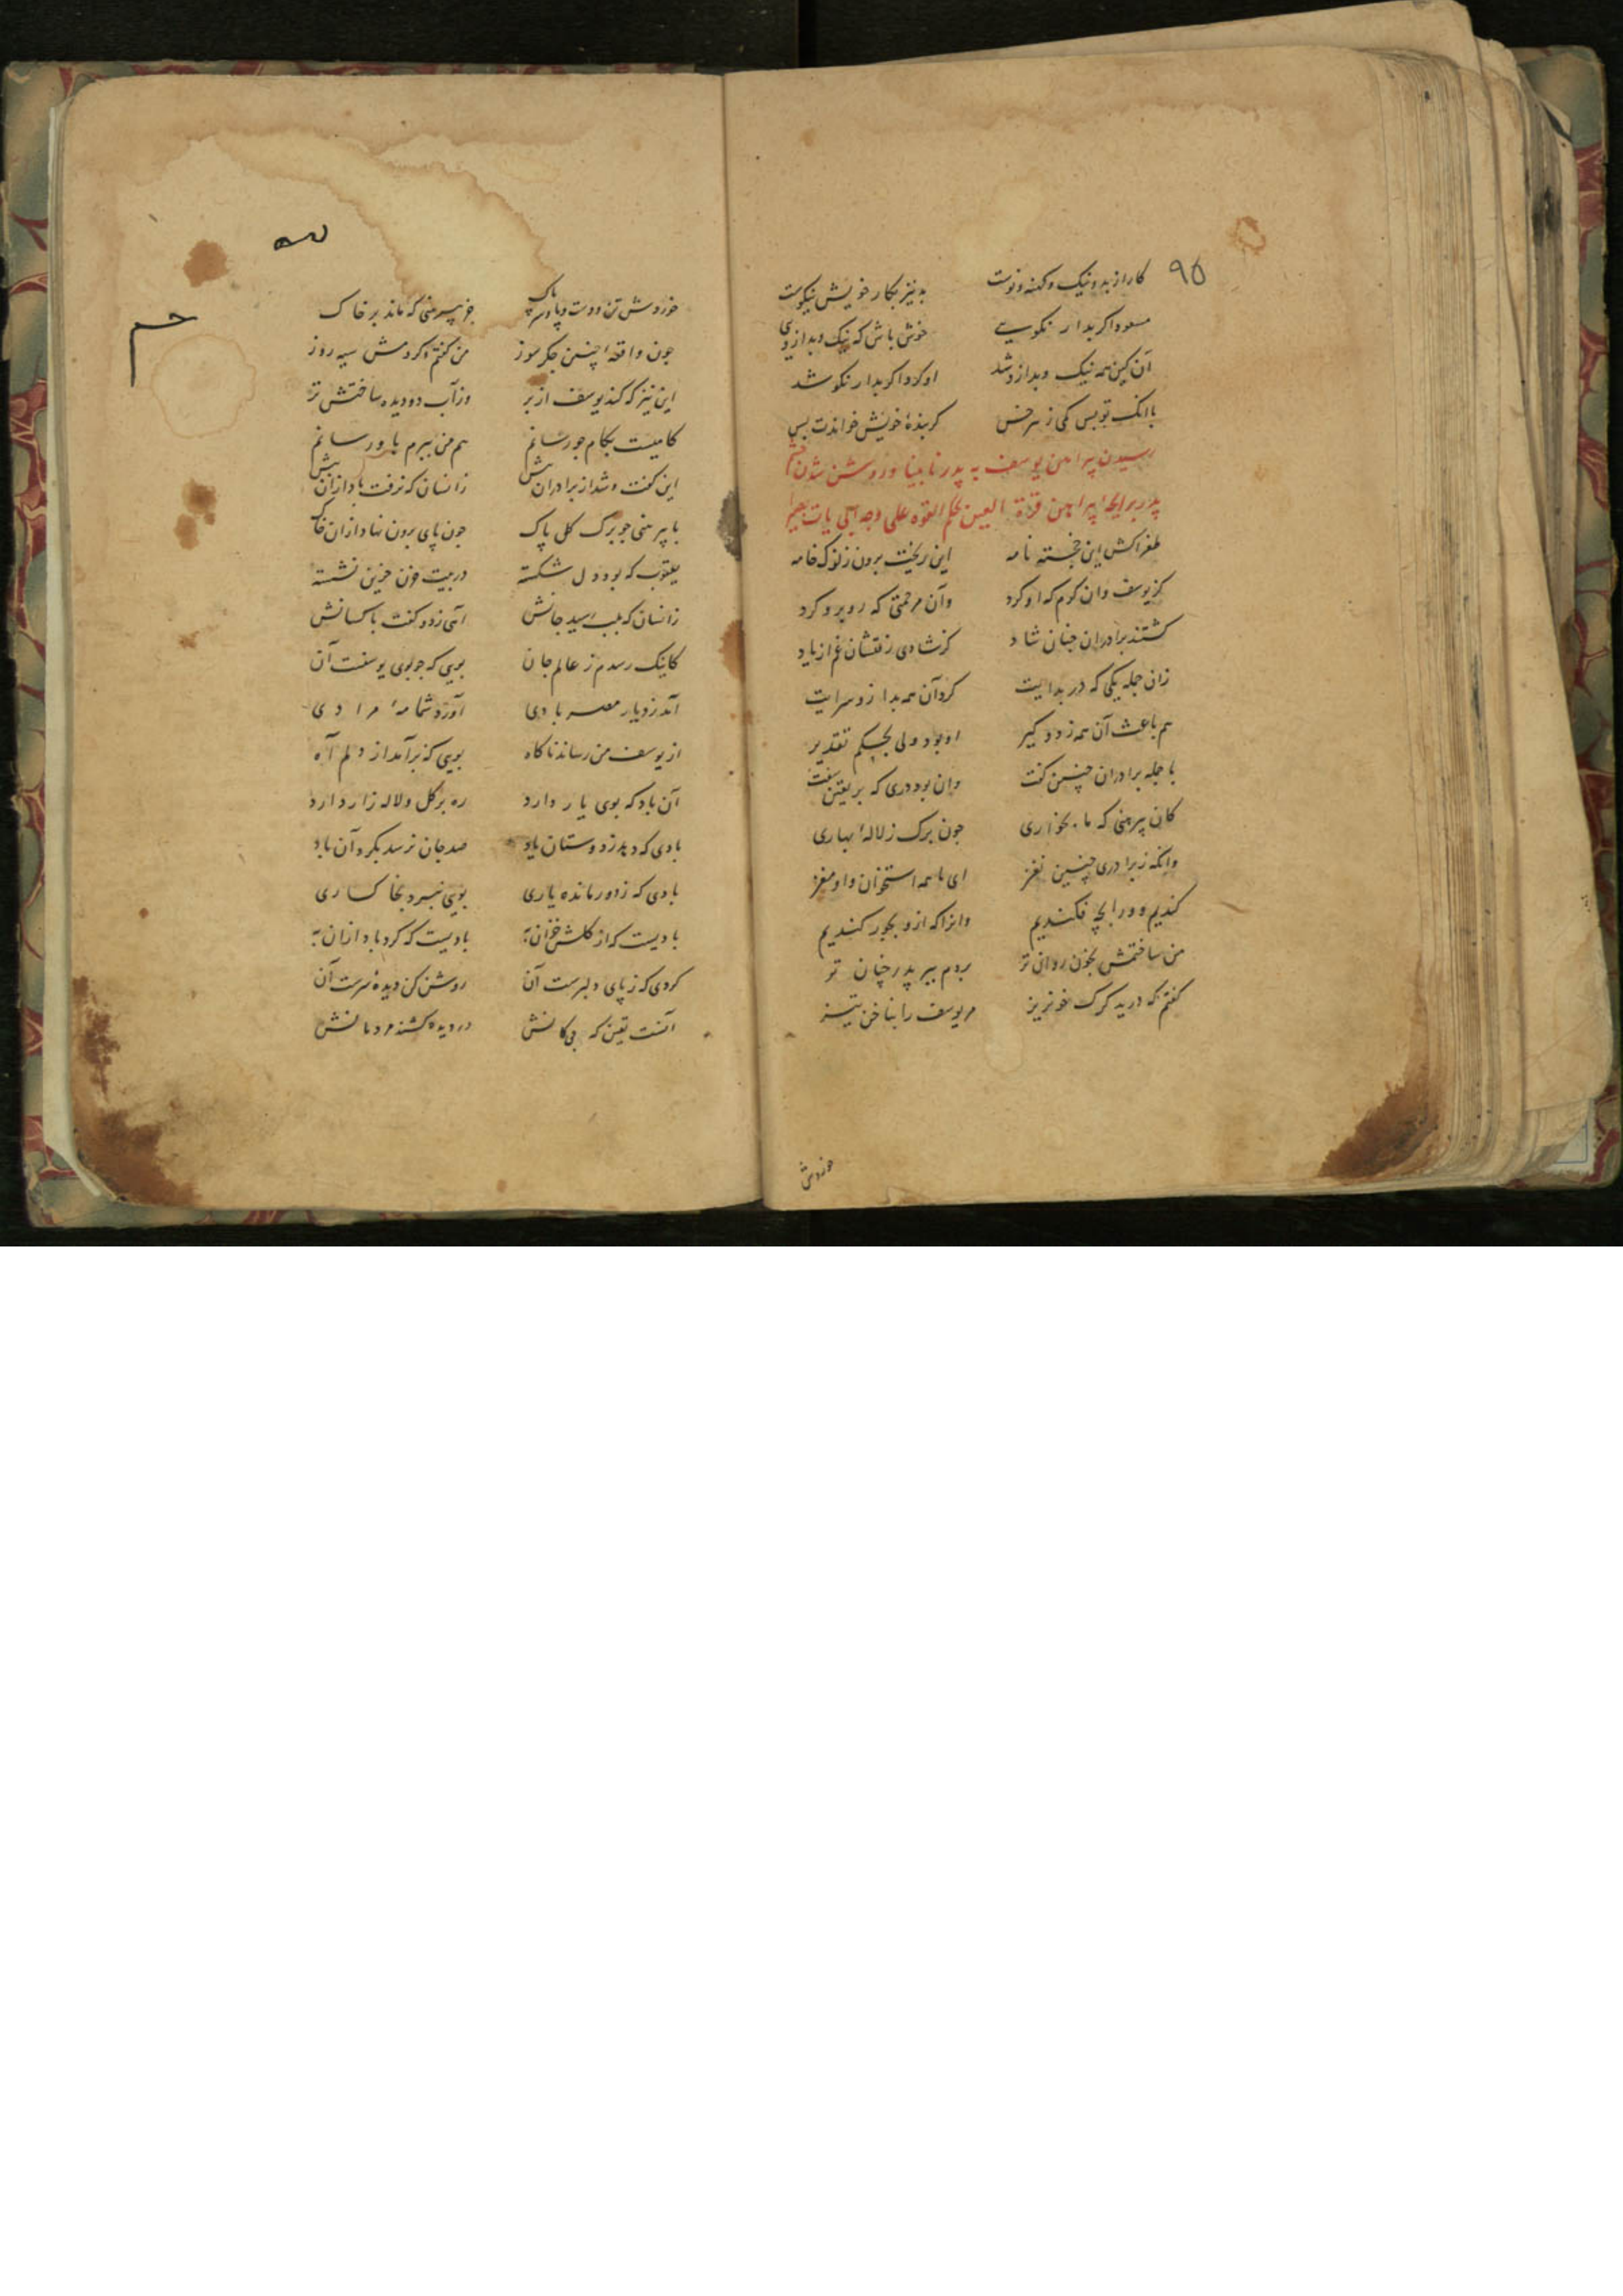 ۹۵
کار از بد و نیک و کهنه و نوست بد نیز بکار خویش نیکوست
مسعود اگر بد ار نکویی خوش باش که نیک و بد ازوی
آن کین همه نیک و بد ازو شد او کرد اگر بد ار نکو شد
با آنک تو بس کمی ز هر خس گر بندهٔ خویش خواندت بس
رسیدن پیراهن یوسف به پدر نابینا و روشن شدن چشم
پدر برایحهٔ پیراهن قرة العین بحکم القوه علی وجه ابی یات بصیرا
طغراکش این خجسته نامه این ریخت برون ز نوک خامه
کز یوسف و ان کرم که او کرد وآن مرحمتی که روبرو کرد
گشتند برادران چنان شاد کز شادی رفتشان غم از یاد
زان جمله یکی که در بدایت کرد آن همه بد ازو سرایت
هم باعث آن همه زد و گیر او بود ولی بحکم تقدیر
با جمله برادران چنین گفت وان بود دری که بر یقین سفت
کان پیرهنی که ما بخواری چون برگ ز لالهٔ بهاری
وانگه ز برادری چنین نغز ای ما همه استخوان و او مغز
کندیم و ورا بچه فکندیم وانرا که ازو بجور کندیم
من ساختمش بخون روان تر بردم ببر پدر چنان تر
گفتم که درید گرگ خونریز مر یوسف را بناخن تیز
خوردش
خوردش تن و دست و پا و سر پاک جز پیرهنی که ماند بر خاک
چون واقعهٔ چنین جگر سوز من گفتم و کردمش سیه روز
این نیز که کند یوسف از بر وز آب دو دیده ساختش تر
کامیست بکام چو رسانم هم من ببرم باو رسانم
این گفت و شد از برادران پیش زانسان که نرفت باد ازان پیش
با پیرهنی چو برگ گل پاک چون پای برون نهاد ازان خاک
یعقوب که بود دل شکسته در بیت حزن حزین نشسته
زانسان که بلب رسید جانش آهی زد و گفت با کسانش
کاینک رسدم ز عالم جان بویی که چو بوی یوسفست آن
آمد ز دیار مصر بادی آورد شمامهٔ مرادی
از یوسف من رساند ناگاه بویی که برآمد از دلم آه
آن باد که بوی یار دارد ره بر گل و لاله زار دارد
بادی که دهد ز دوستان یاد صد جان نرسد بگرد آن باد
بادی که ز دور مانده یاری بویی ببرد بخاکساری
بادیست که از گلش خزان به بادیست که گرد باد ازان به
گردی که ز پای دلبرست آن روشن کن دیدهٔ ترست آن
در دیده کشند مردمانش